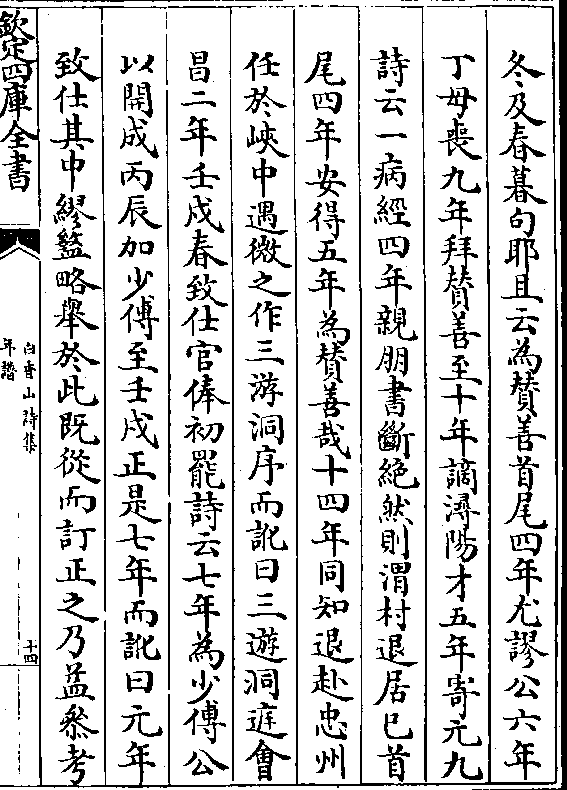 冬及春暮句耶且云為贊善首尾四年尤謬公六年
丁母喪九年拜贊善至十年謫潯陽才五年寄元九
詩云一病經四年親朋書斷絶然則渭村退居已首
尾四年安得五年為贊善哉十四年同知退赴忠州
任於峽中遇微之作三游洞序而訛曰三遊洞遊會
昌二年壬戌春致仕官俸初罷詩云七年為少傅公
以開成丙辰加少傅至壬戌正是七年而訛曰元年
致仕其中繆盭略舉於此既從而訂正之乃益叅考
欽定四庫全書
白香山詩集
年譜
十四